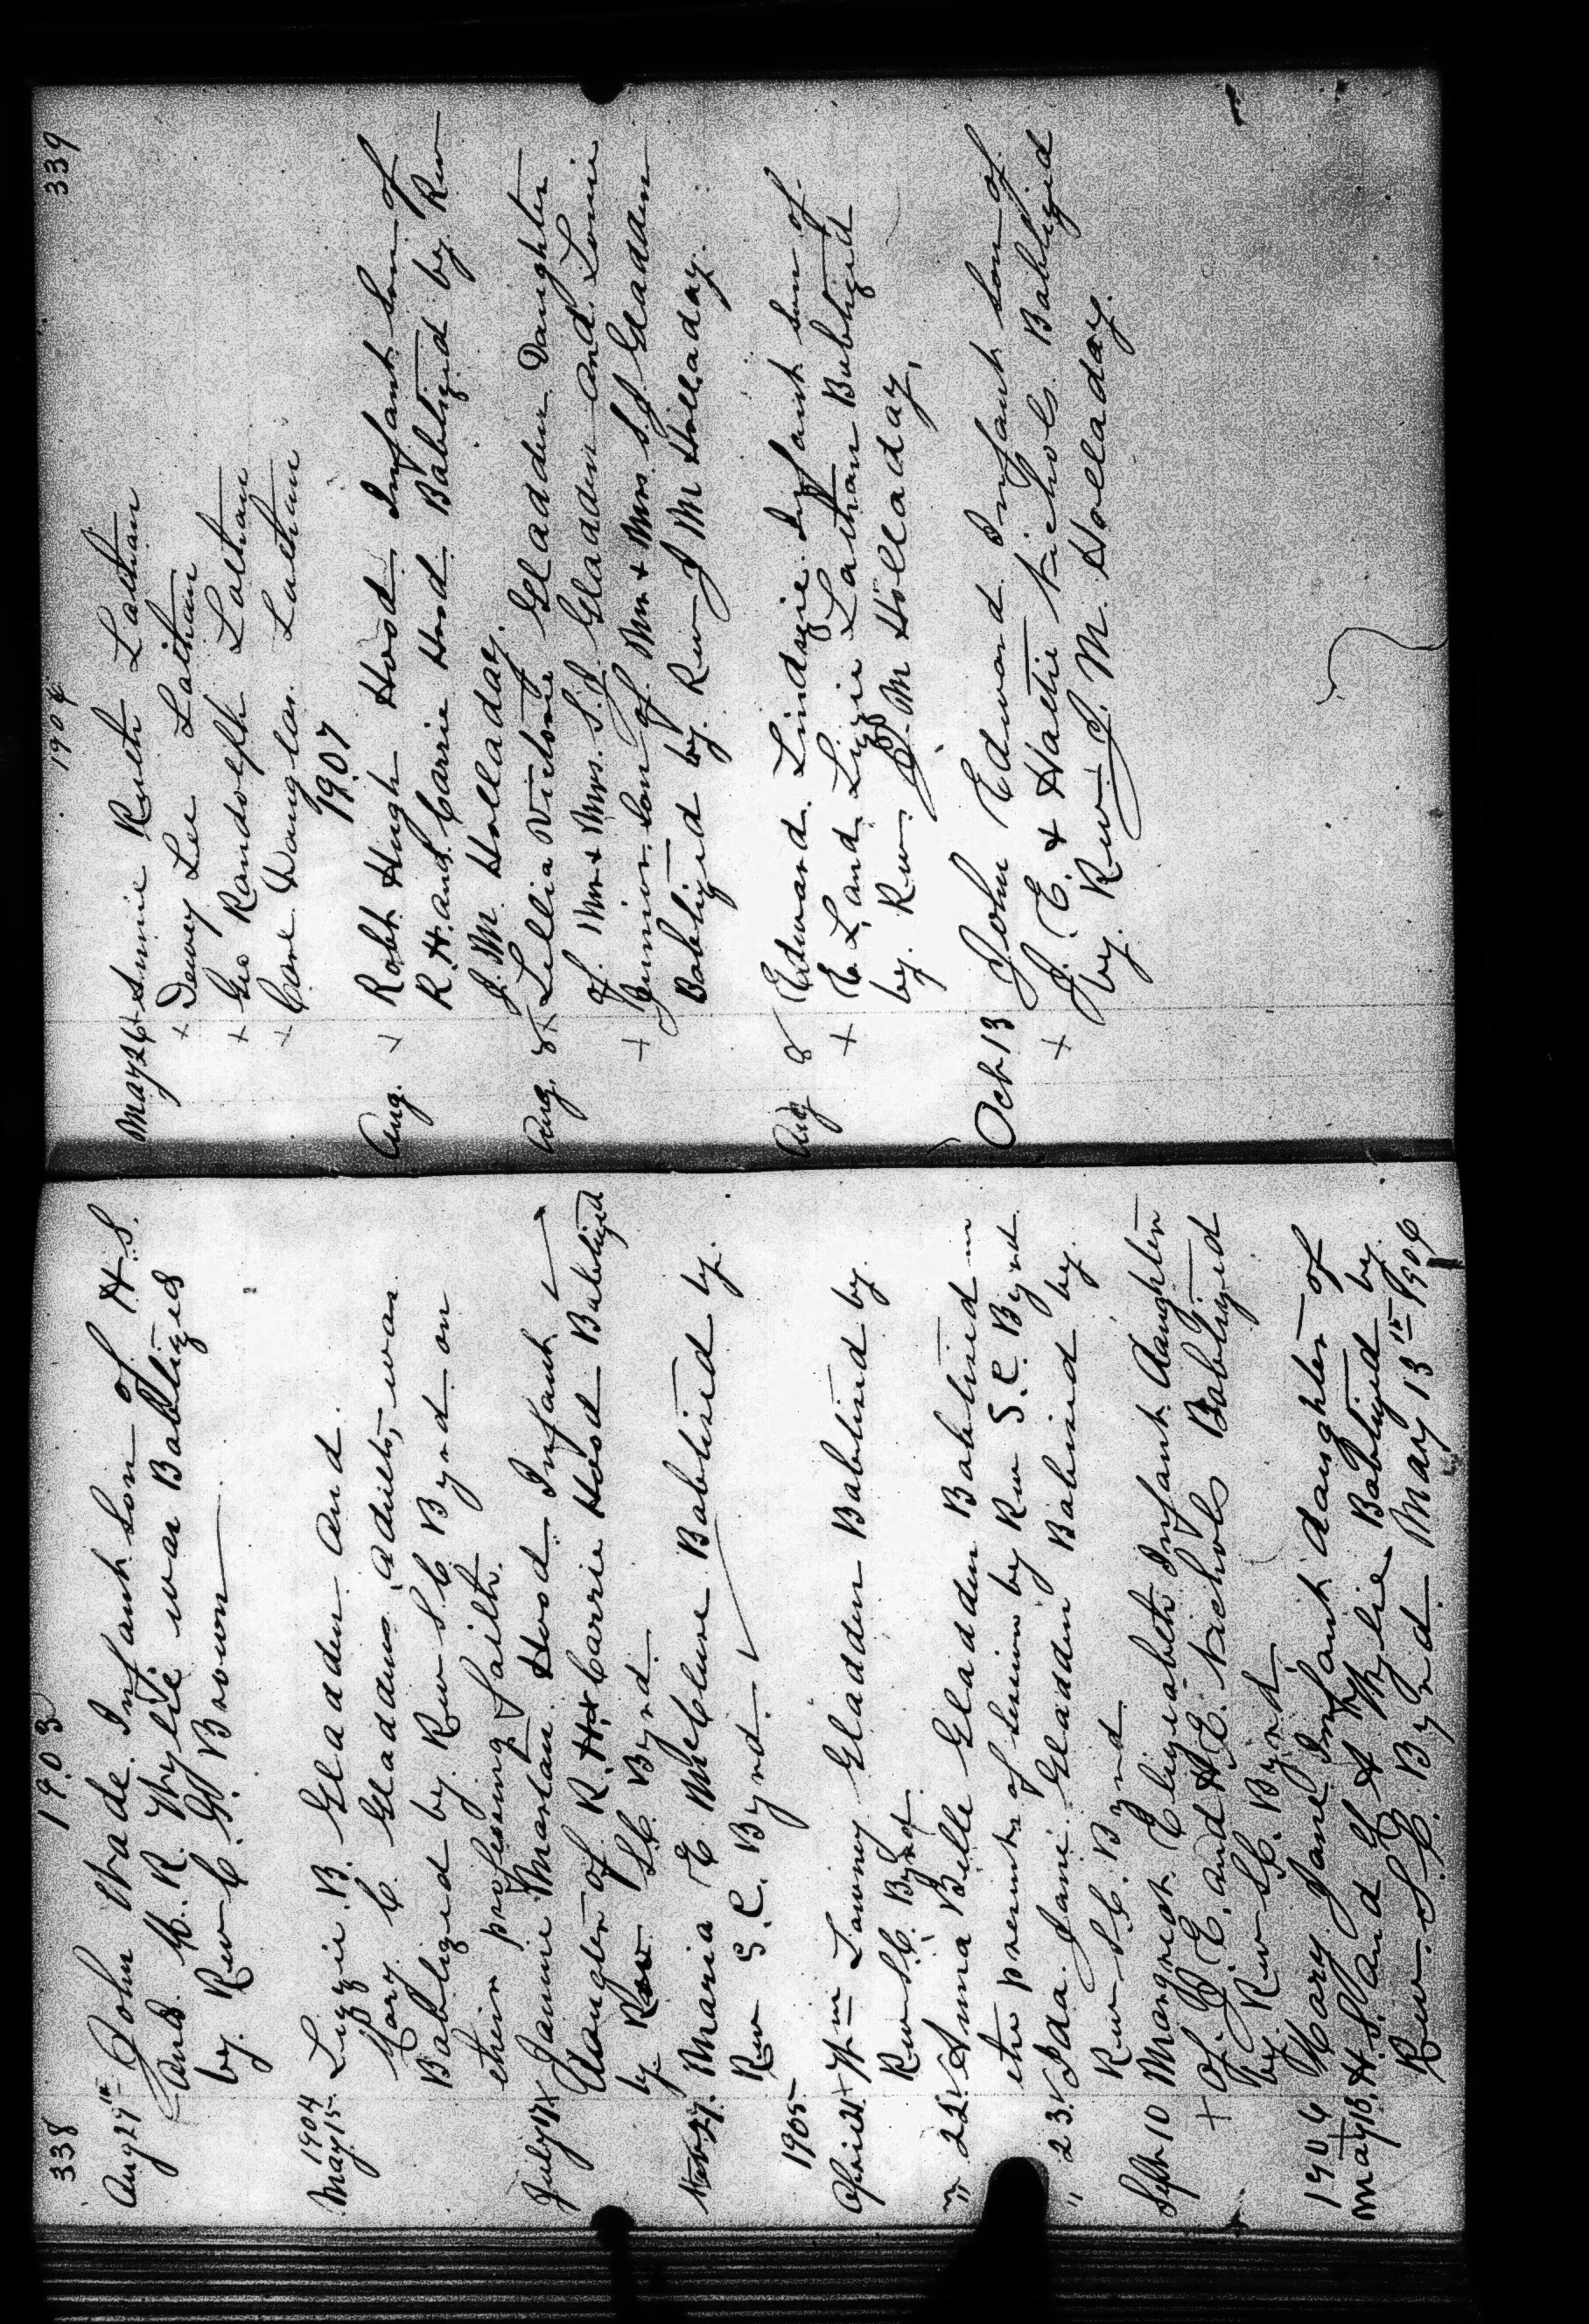 338 1903
Aug 29th John Wade Infant son of H. S.
and M. R. Wylie was Babtized
by Rev C. G. Brown
1904
May 15 Lizzie B. Gladden and
Mary C. Gladden, adults, was
Babtized by Rev S C Byrd on
their professing faith.
July 17 x Jannie Marian Hood Infant
daughter of R. H & Carrie Hood Babtized
by Rev S. C. Byrd
Nov 27. Maria E McClure Babtised by
Rev S. C. Byrd
1905
April 21 + Wm Lowney Gladden Babtised by
Rev S. C. Byrd
" 22 Anna Belle Gladden Babtised in
the presents of Session by Rev S. C. Byrd
" 23 Ida Jane Gladden Babtised by
Rev S. C. Byrd
Sept 10 Margreat Elizabeth Infant daughter
+ of J. E. and H. E. Nichols Babtized
by Rev S. C. Byrd
1906
May 13, Mary Jane Infant daughter of
H. S. and M. Wylie Babtized by
Rev S. C. Byrd May 13th 1906
1906 339
May 26 + Annie Ruth Lathan
+ Dewey Lee Lathan
+ Geo Randolph Lathan
+ Carl Douglas Lathan
1907
Aug. + Robt Hugh Hood Infant son of
R. H. and Carrie Hood Babtized by Rev
J. M. Holladay.
Aug. 8 + Lellia Victoria Gladden Daughter
of Mr & Mrs. S. J. Gladden and Lonie
+ Junior son of Mr & Mrs S. J Gladden
Babtized by Rev J M Holladay.
Aug 8 Edward Lindszie Infant son of
+ E. L. and Lizzie Lathan Babtized
by Rev. J. M Holladay,
Oct 13 John Edward Infant son of
+ J. E. & Hattie Nichols Babtized
by Rev. J. M. Holladay.